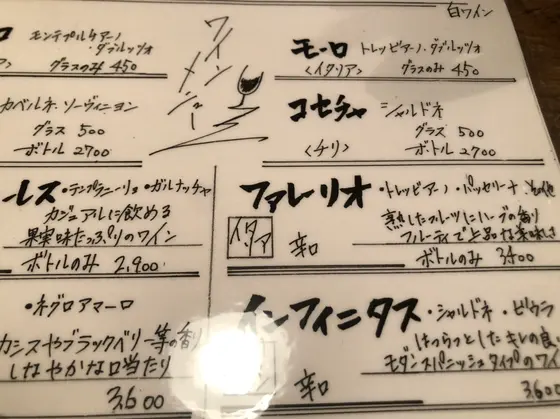 白ワイン
ワインメニュー
モンテプルチアーノ
・ダブルッツォ
グラスのみ 450
カベルネ・ソーヴィニヨン
グラス 500
ボトル 2700
レス・テンプラニーリョ・ガルナッチャ
カジュアルに飲める
果実味たっぷりのワイン
ボトルのみ 2,900
・ネグロアマーロ
カシスやブラックベリー等の香り
しなやかな口当たり
3,600
モーロ トレッビアーノ・ダブルッツォ
<イタリア> グラスのみ 450
コセチャ シャルドネ
グラス 500
<チリ> ボトル 2700
ファレーリオ・トレッビアーノ・パッセリーナ
熟したフルーツにハーブの香り
イタリア 辛口 フルーティで上品な美味しさ
ボトルのみ 3400
インフィニタス・シャルドネ・ビウラ
はつらつとしたキレの良い
辛口 モダンスパニッシュタイプのワイ
3,600